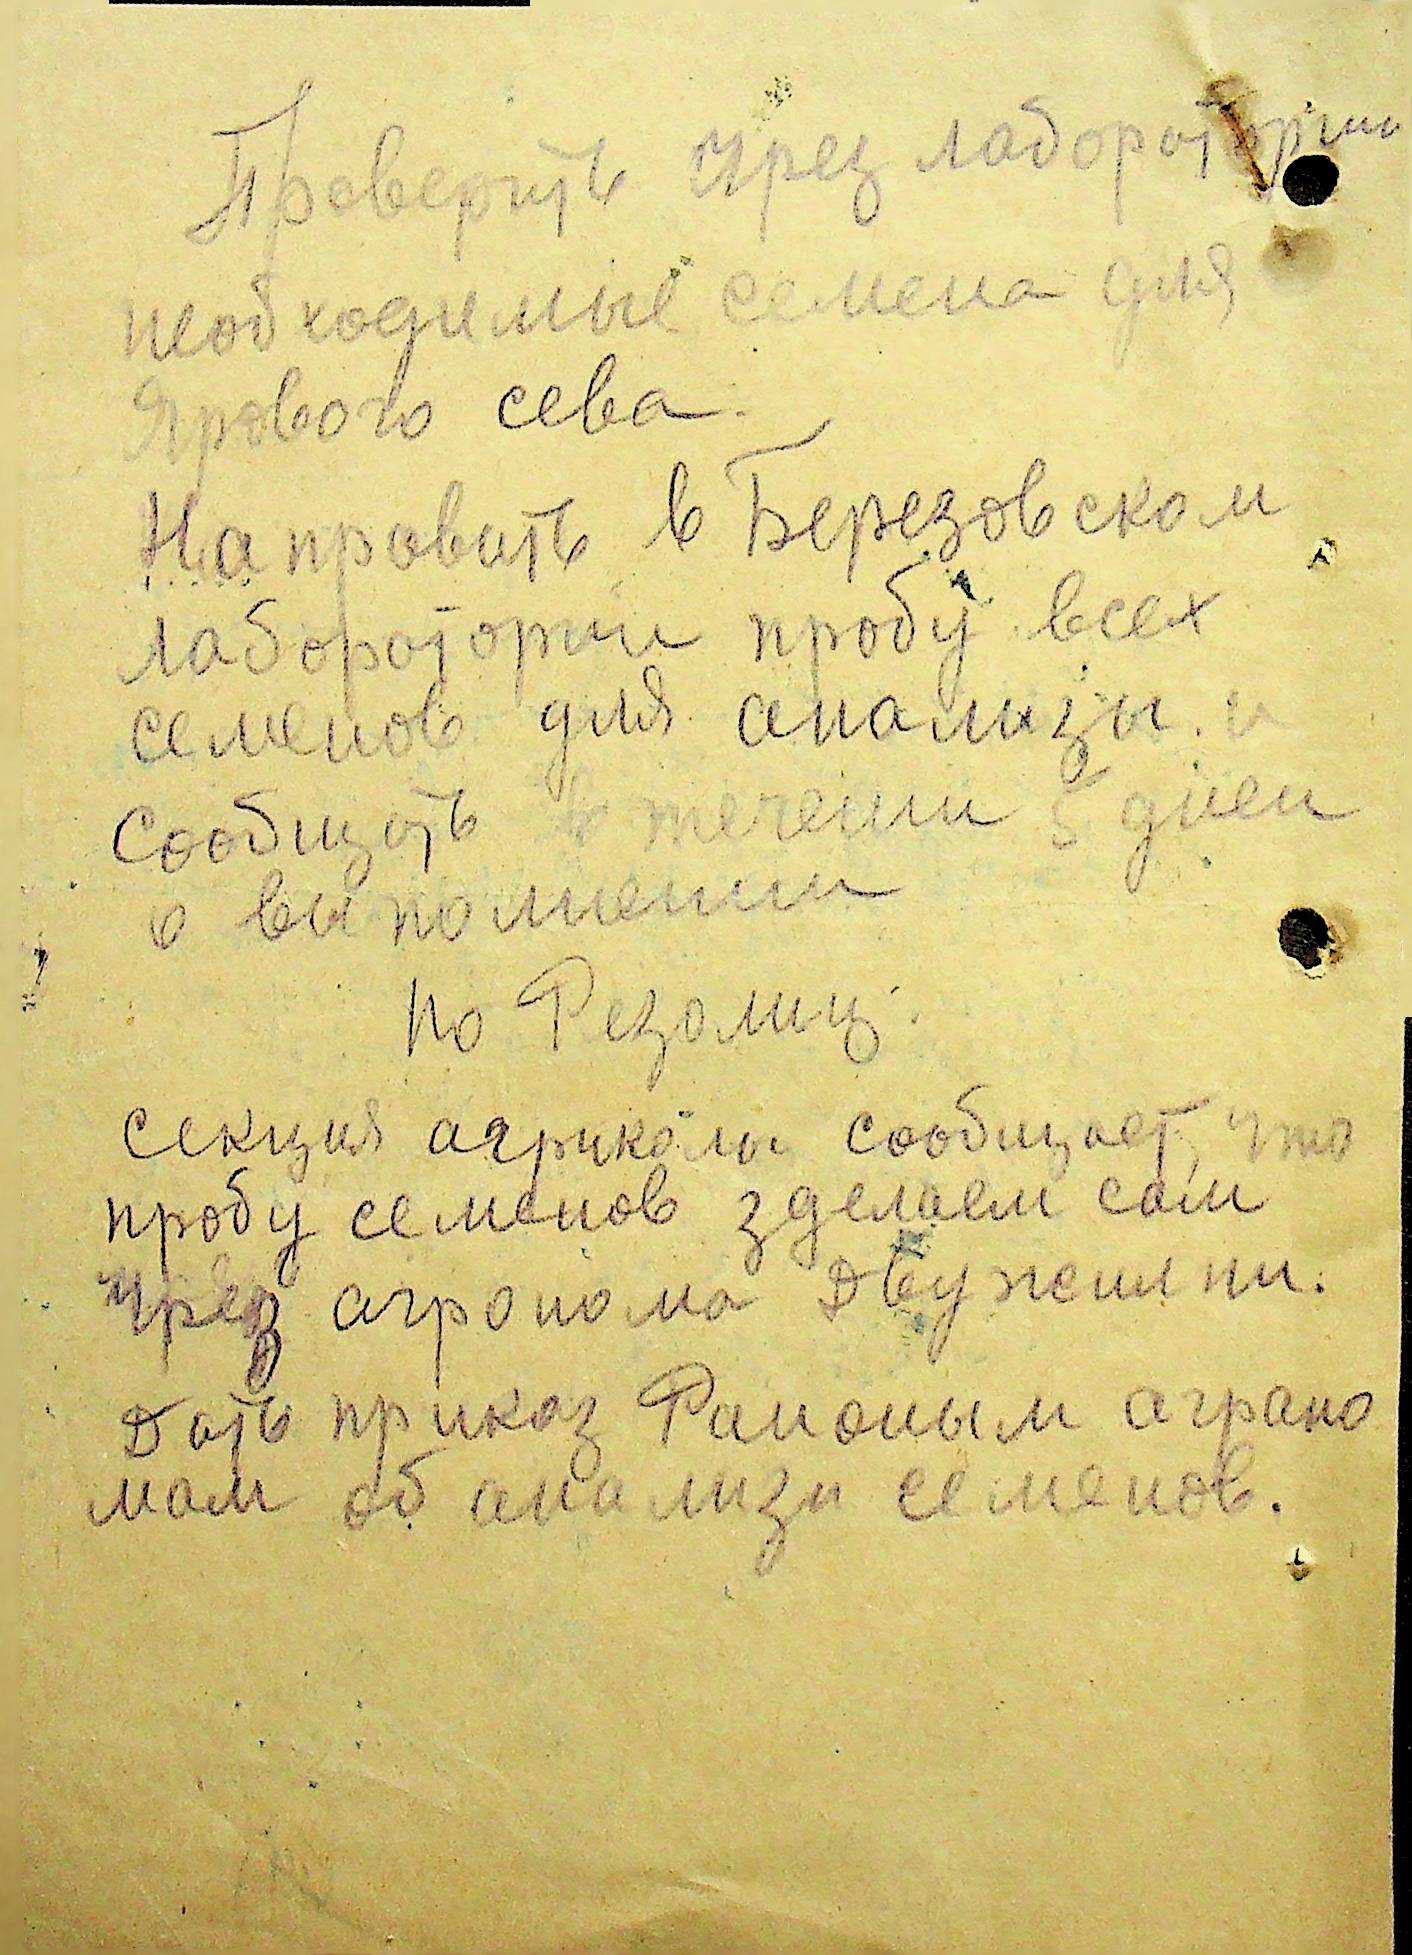 Проверить чрез лабораторию
необходимые семена для
Ярового сева.
Направить в Березовском
лаборотории пробу всех
семенов для анализы и
Сообщить в течении 5 дней
о выполнении
По Резолиц.
секция агриколы сообщает, что
пробу семенов зделаем сам
чрез агронома
Дать приказ Раионым аграно
мам об анализи семенов.